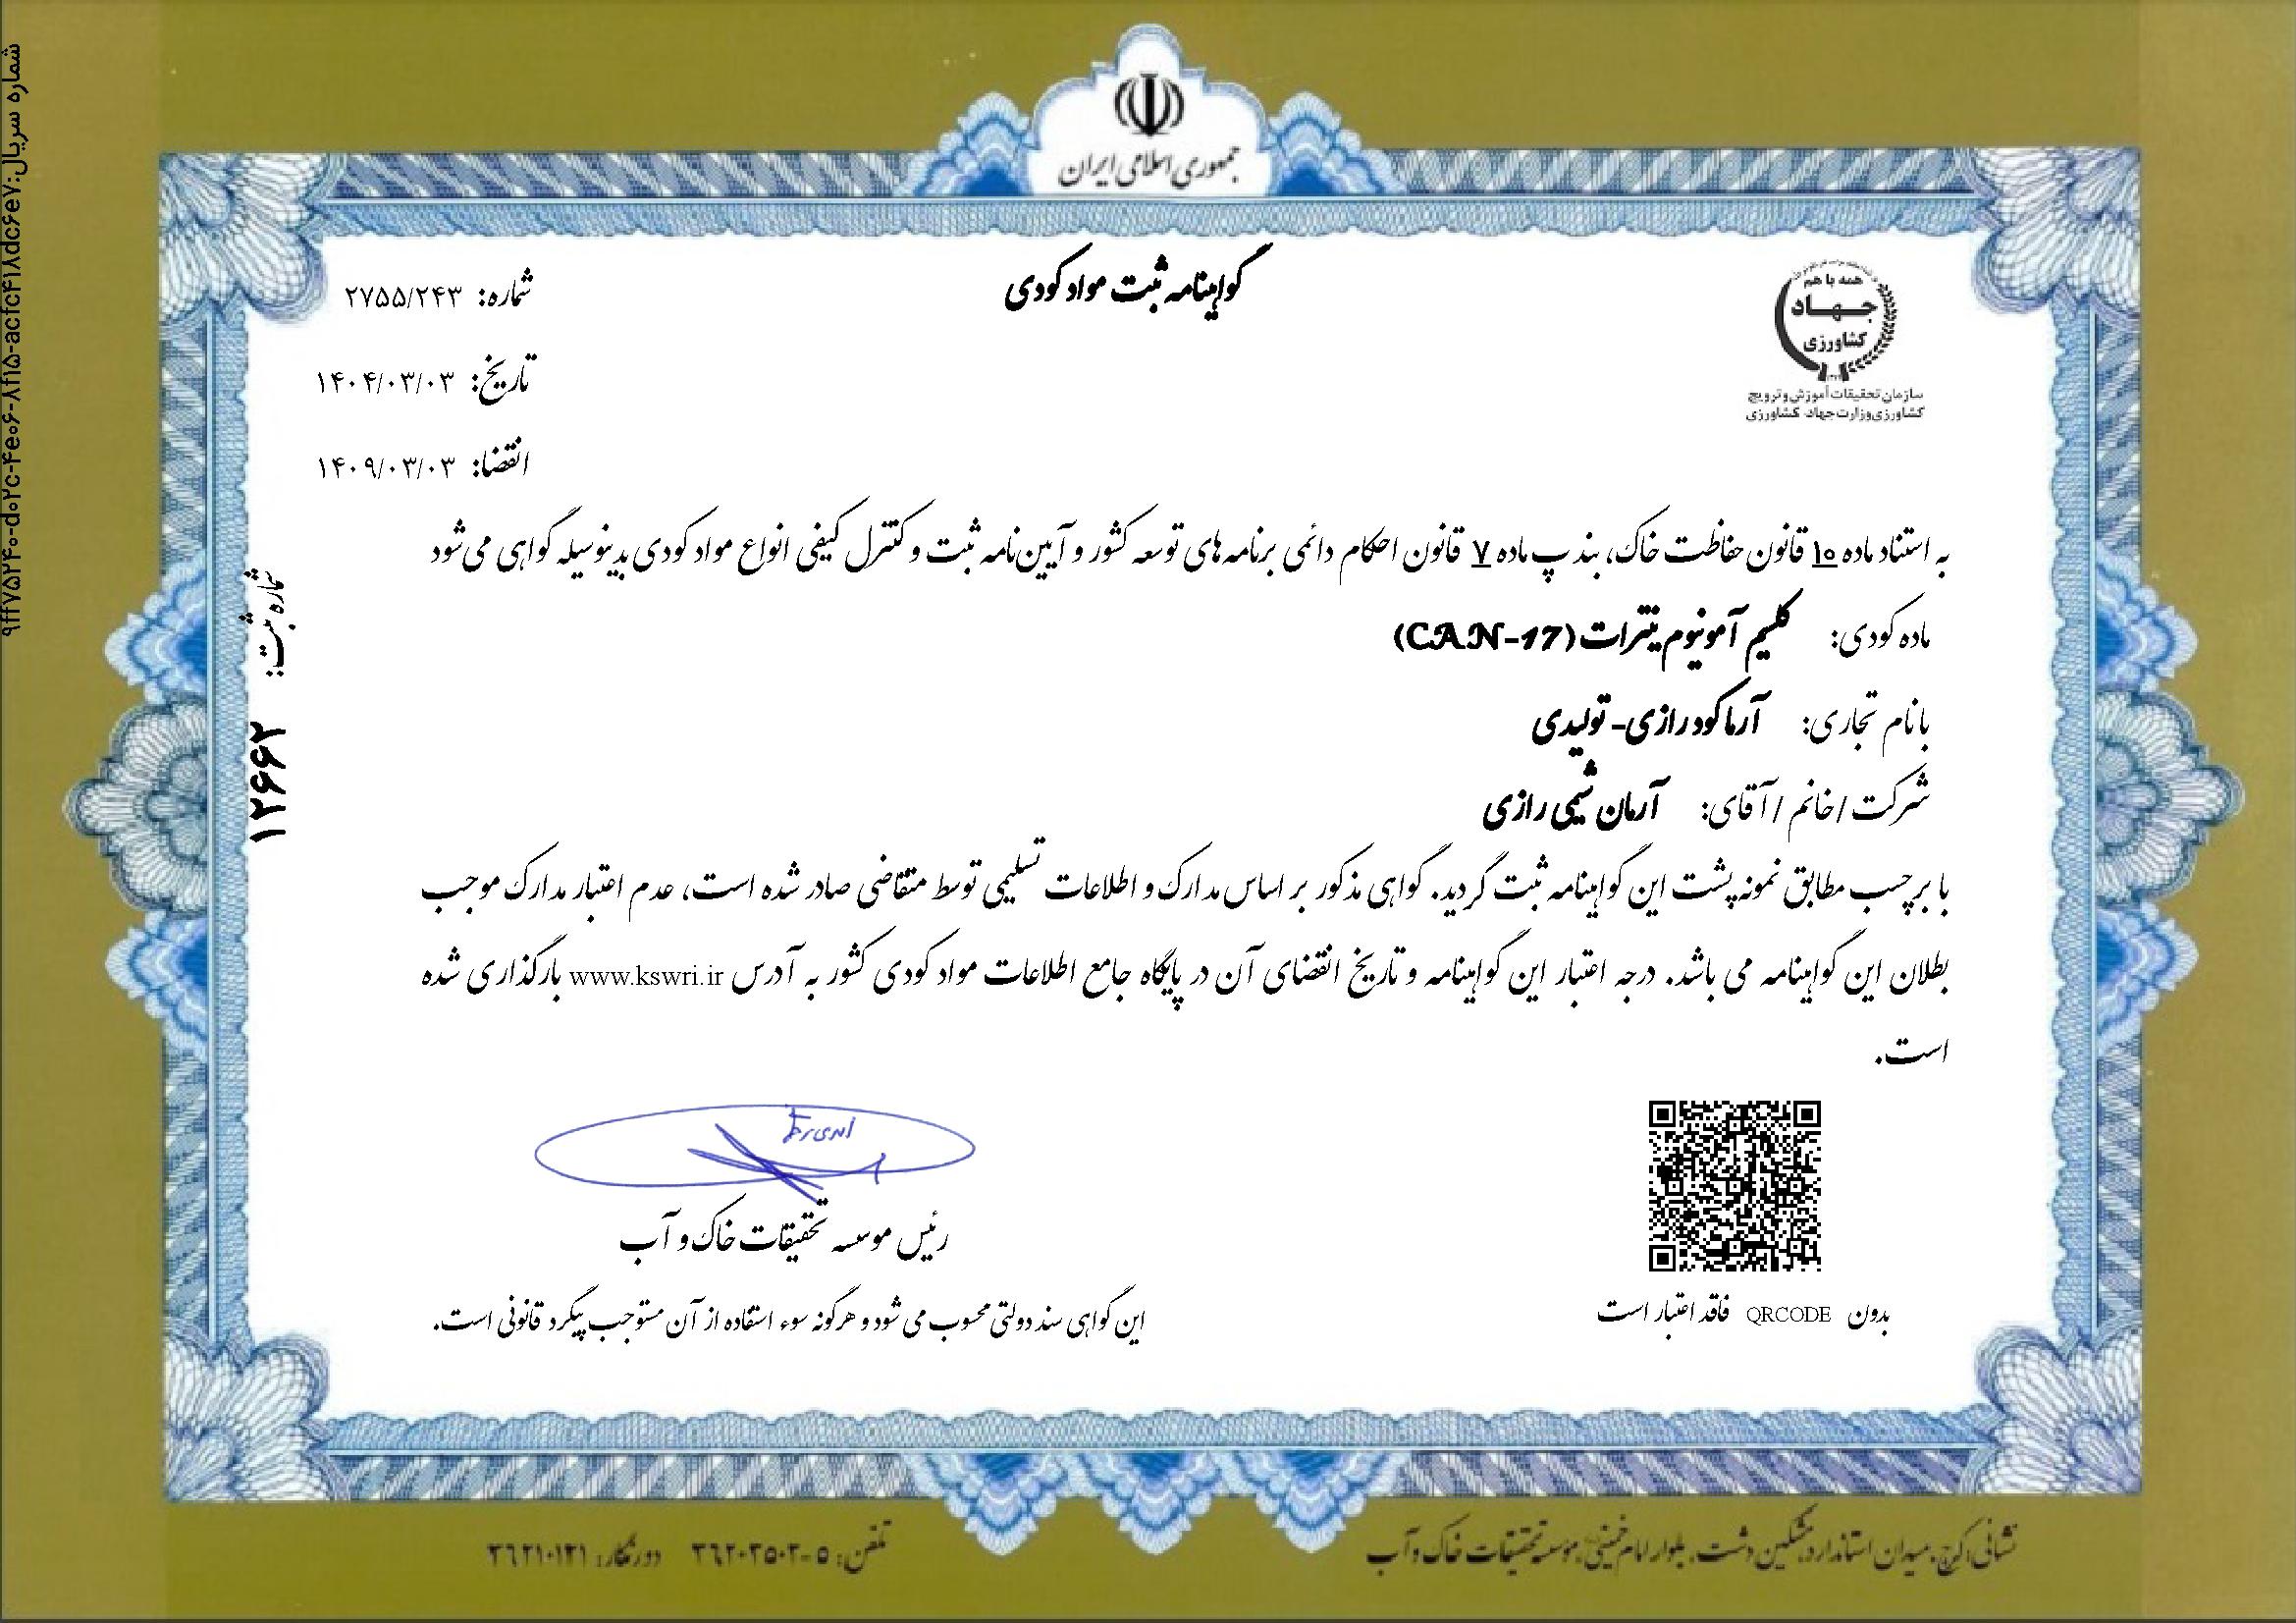 جمهوری اسلامی ایران
همه با هم
جهاد
کشاورزی
سازمان تحقیقات آموزش و ترویج
کشاورزی وزارت جهاد کشاورزی
گواهینامه ثبت مواد کودی
شماره: ۲۷۵۵/۲۴۳
تاریخ: ۱۴۰۴/۰۳/۰۳
انقضا: ۱۴۰۹/۰۳/۰۳
به استناد ماده ۱۰ قانون حفاظت خاک، بند پ ماده ۷ قانون احکام دائمی برنامه های توسعه کشور و آیین نامه ثبت و کنترل کیفی انواع مواد کودی بدینوسیله گواهی می شود
ماده کودی: کلسیم آمونیوم نیترات (CAN-17)
با نام تجاری: آرما کود رازی- تولیدی
شرکت/خانم/آقای: آرمان شیمی رازی
با برچسب مطابق نمونه پشت این گواهینامه ثبت گردید. گواهی مذکور بر اساس مدارک و اطلاعات تسلیمی توسط متقاضی صادر شده است، عدم اعتبار مدارک موجب
بطلان این گواهینامه می باشد. درجه اعتبار این گواهینامه و تاریخ انقضای آن در پایگاه جامع اطلاعات مواد کودی کشور به آدرس www.kswri.ir بارگذاری شده
است.
رئیس موسسه تحقیقات خاک و آب
این گواهی سند دولتی محسوب می شود و هرگونه سوء استفاده از آن مستوجب پیگرد قانونی است.
بدون QRCODE فاقد اعتبار است
شماره ثبت: ۱۲۶۶۲
شماره سریال:۹ff۷۵۲۴۰-d۰۲c-۴e۰۶-۸f۱۵-acfc۴۱۸dc۶e۷
نشانی: کرج، میدان استاندارد، مشکین دشت، بلوار امام خمینی، موسسه تحقیقات خاک و آب
تلفن: ۵-۳۶۲۰۲۵۰۲ دورنگار: ۳۶۲۱۰۱۲۱